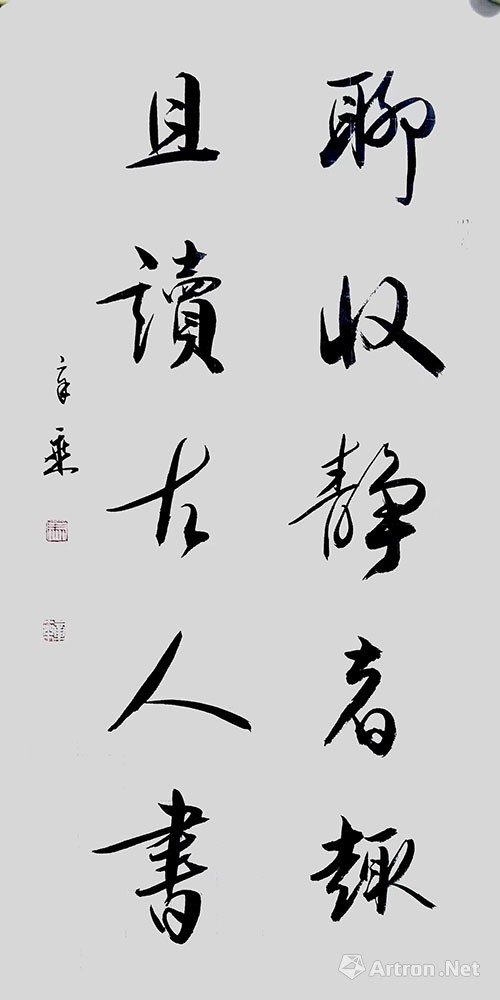 聊收靜者趣
且讀古人書
Artron.Net